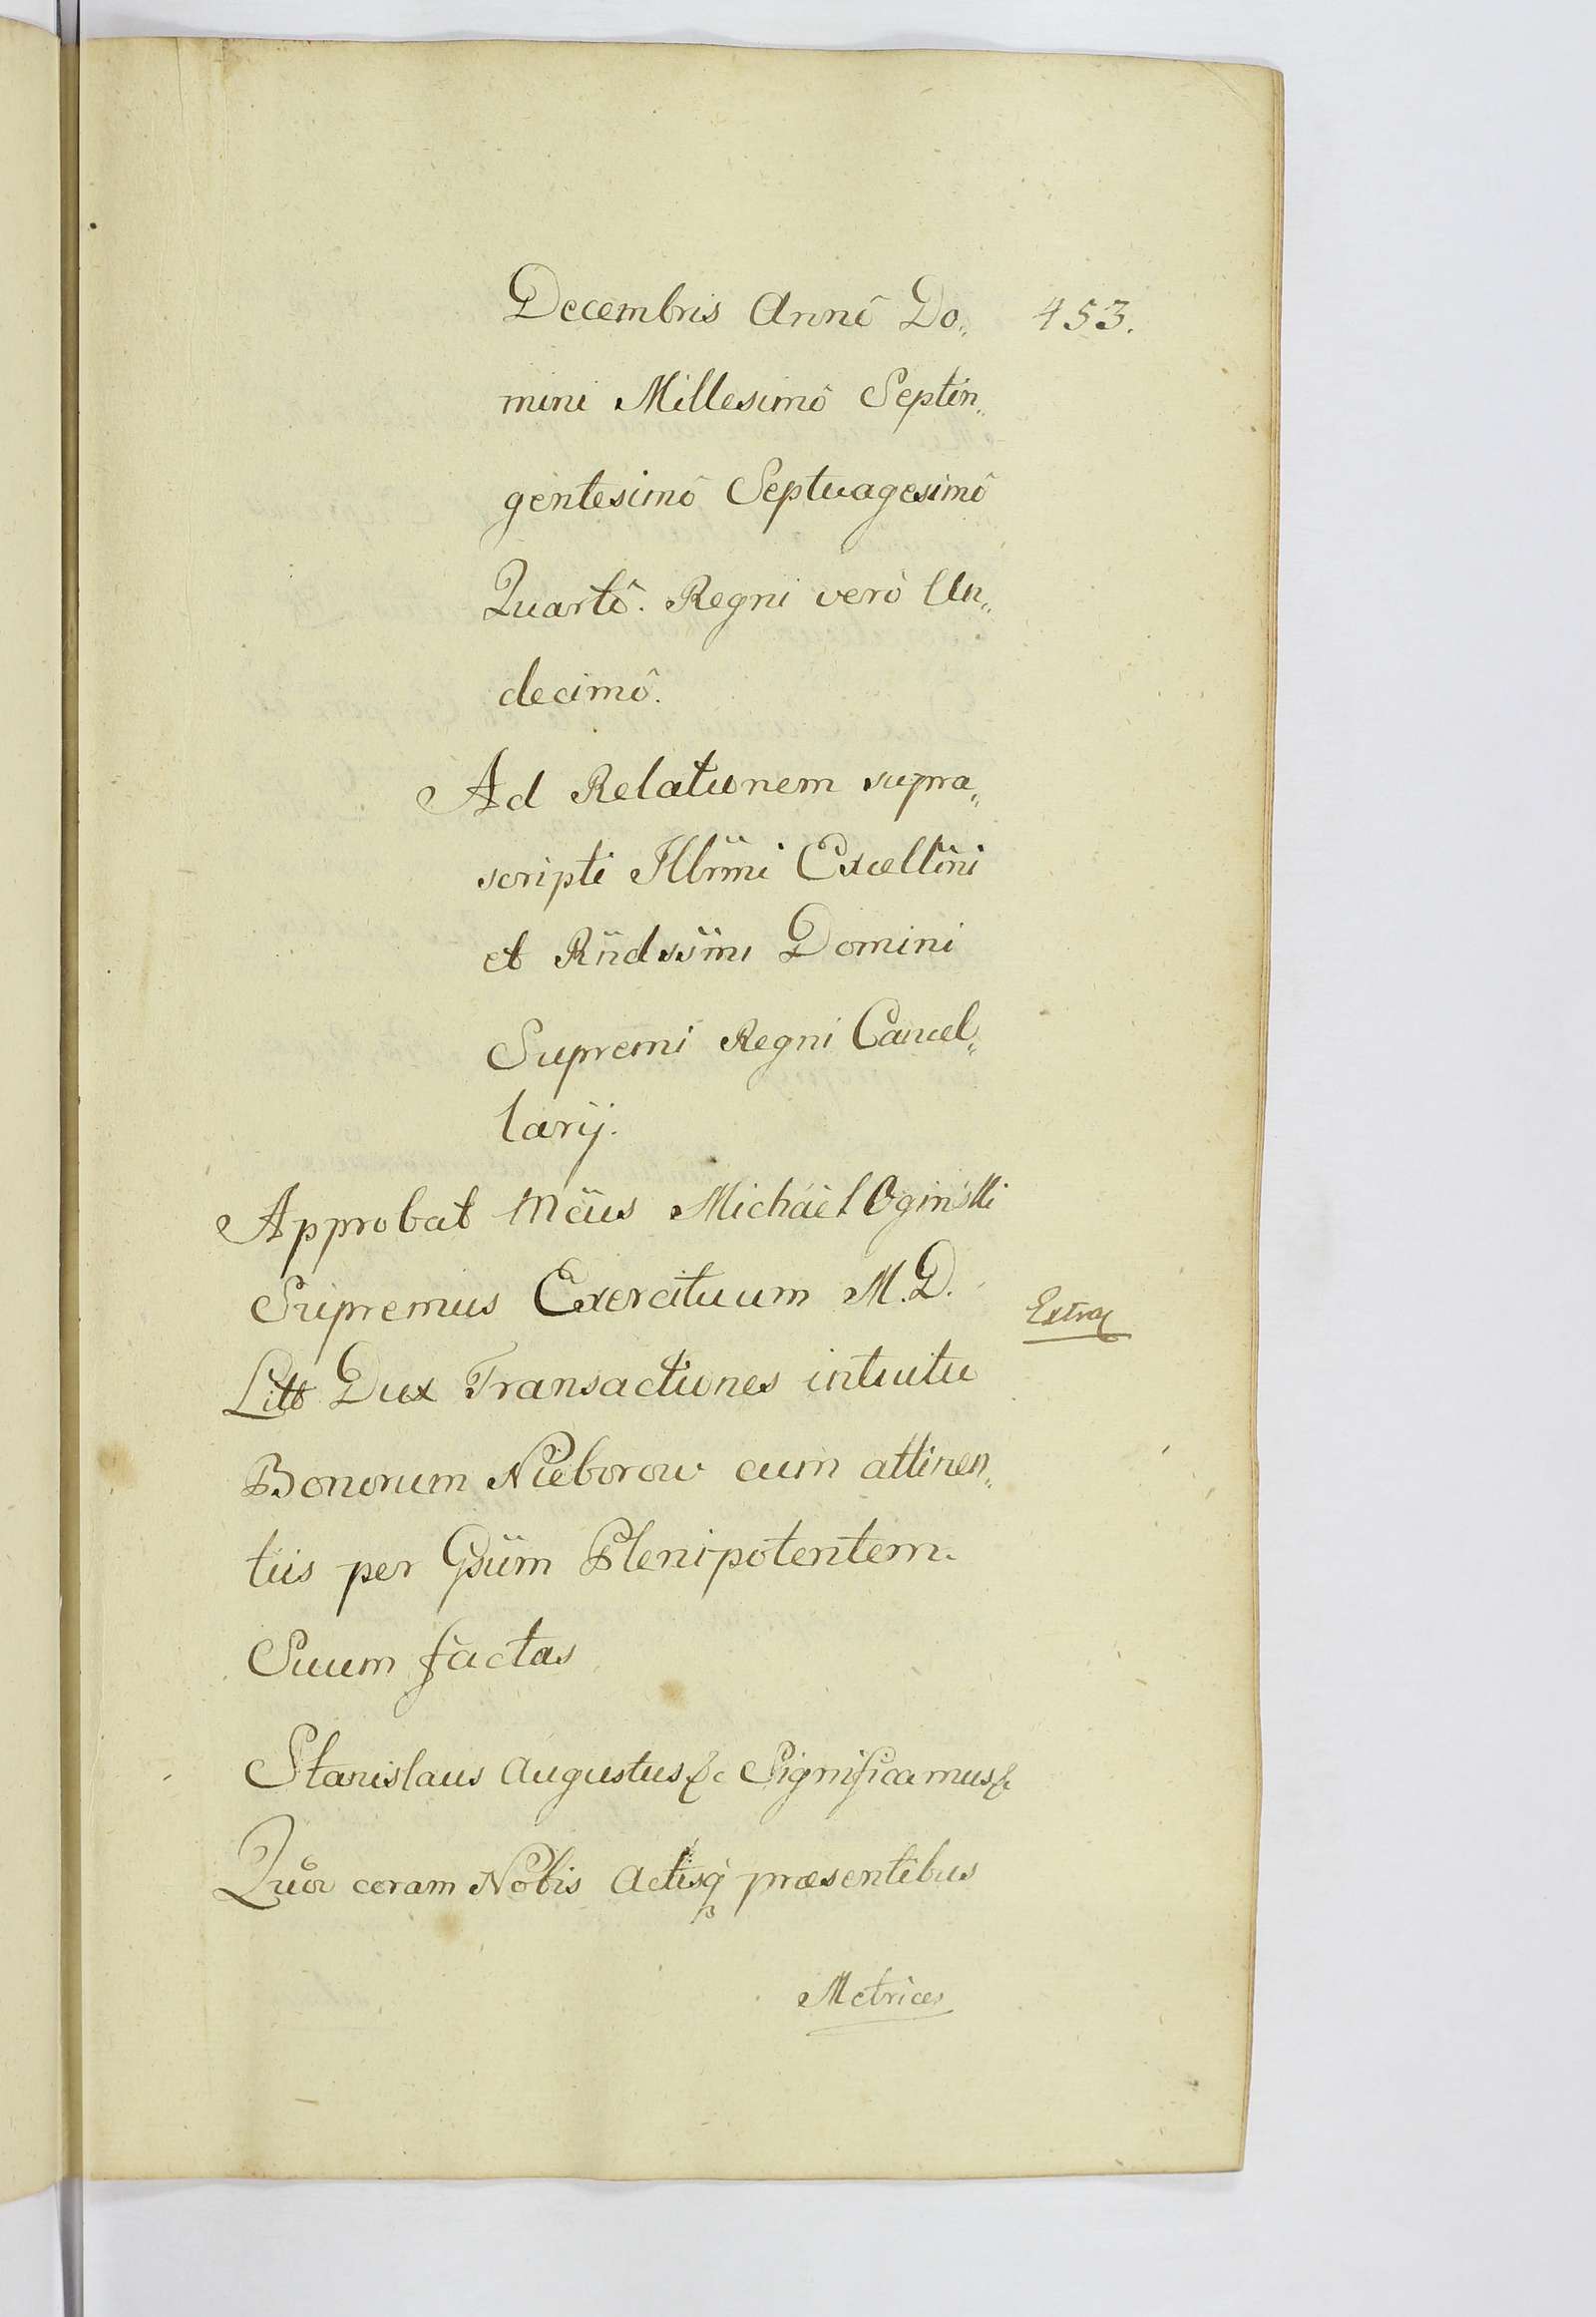 Decembris Annô Do„ 453.
mini Millesimô Septin„
gentesimô Septuagesimô
Quartô. Regni verò Un„
decimô.
Ad Relationem supra„
scripti Illr̃mi Excellm̃i
et Rñdssim̃i Domini
Supremi Regni Cancel„
larij.
Approbat Mc̃us Michäel Ogiński
Supremus Exercituum M. D.
Litt Dux Transactiones intuitu
Bonorum Nieborow cum attinen„
tiis per Gsũm Plenipotentem
Suum factas
Extrax
Stanislaus Augustus &c Significamus &c
Quia coram Nobis Actisq́ præsentibus
Metrices